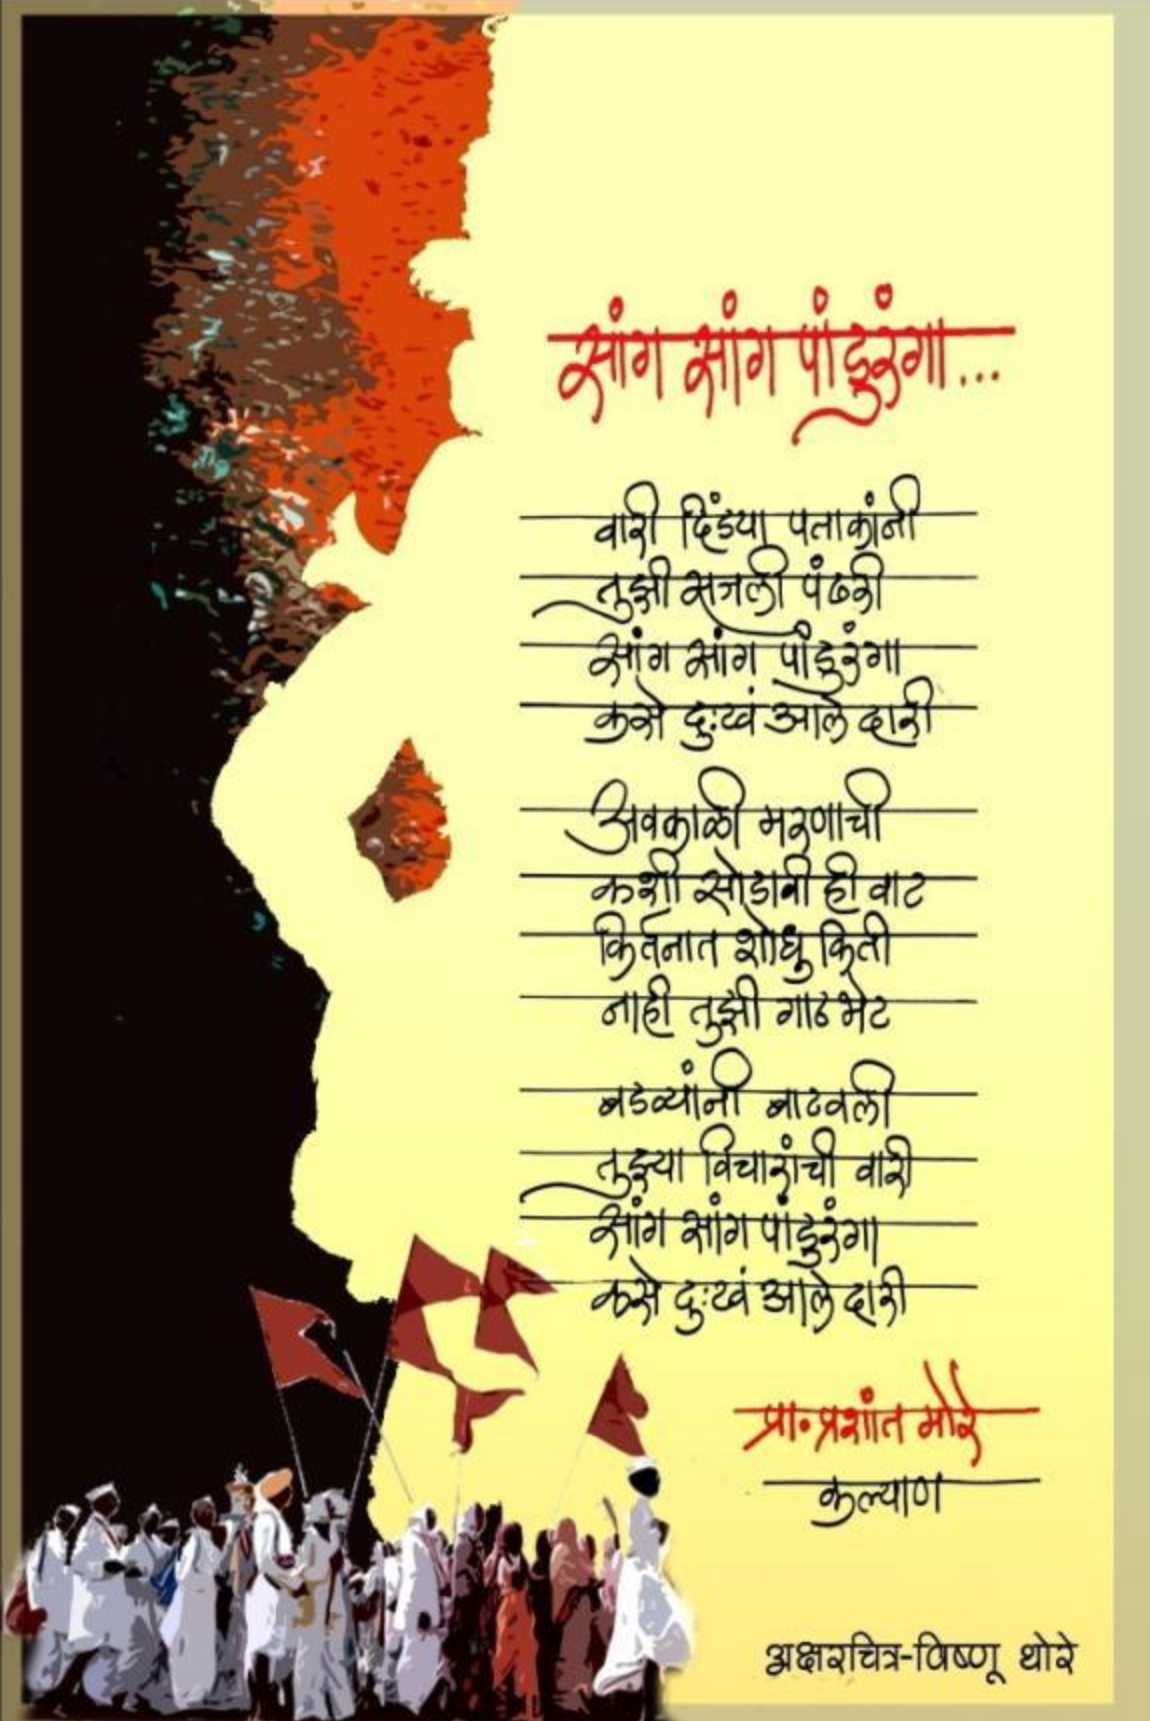 सांग सांग पांडुरंगा...
वारी दिंड्या पताकांनी
तुझी सजली पंढरी
सांग सांग पांडुरंगा
कसे दुःखं आले दारी
अवकाळी मरणाची
कशी सोडावी ही वाट
किर्तनात शोधु किती
नाही तुझी गाठ भेट
बडव्यांनी बाटवली
तुझ्या विचारांची वारी
सांग सांग पांडुरंगा
कसे दुःखं आले दारी
प्रा. प्रशांत मोरे
कल्याण
अक्षरचित्र-विष्णू थोरे